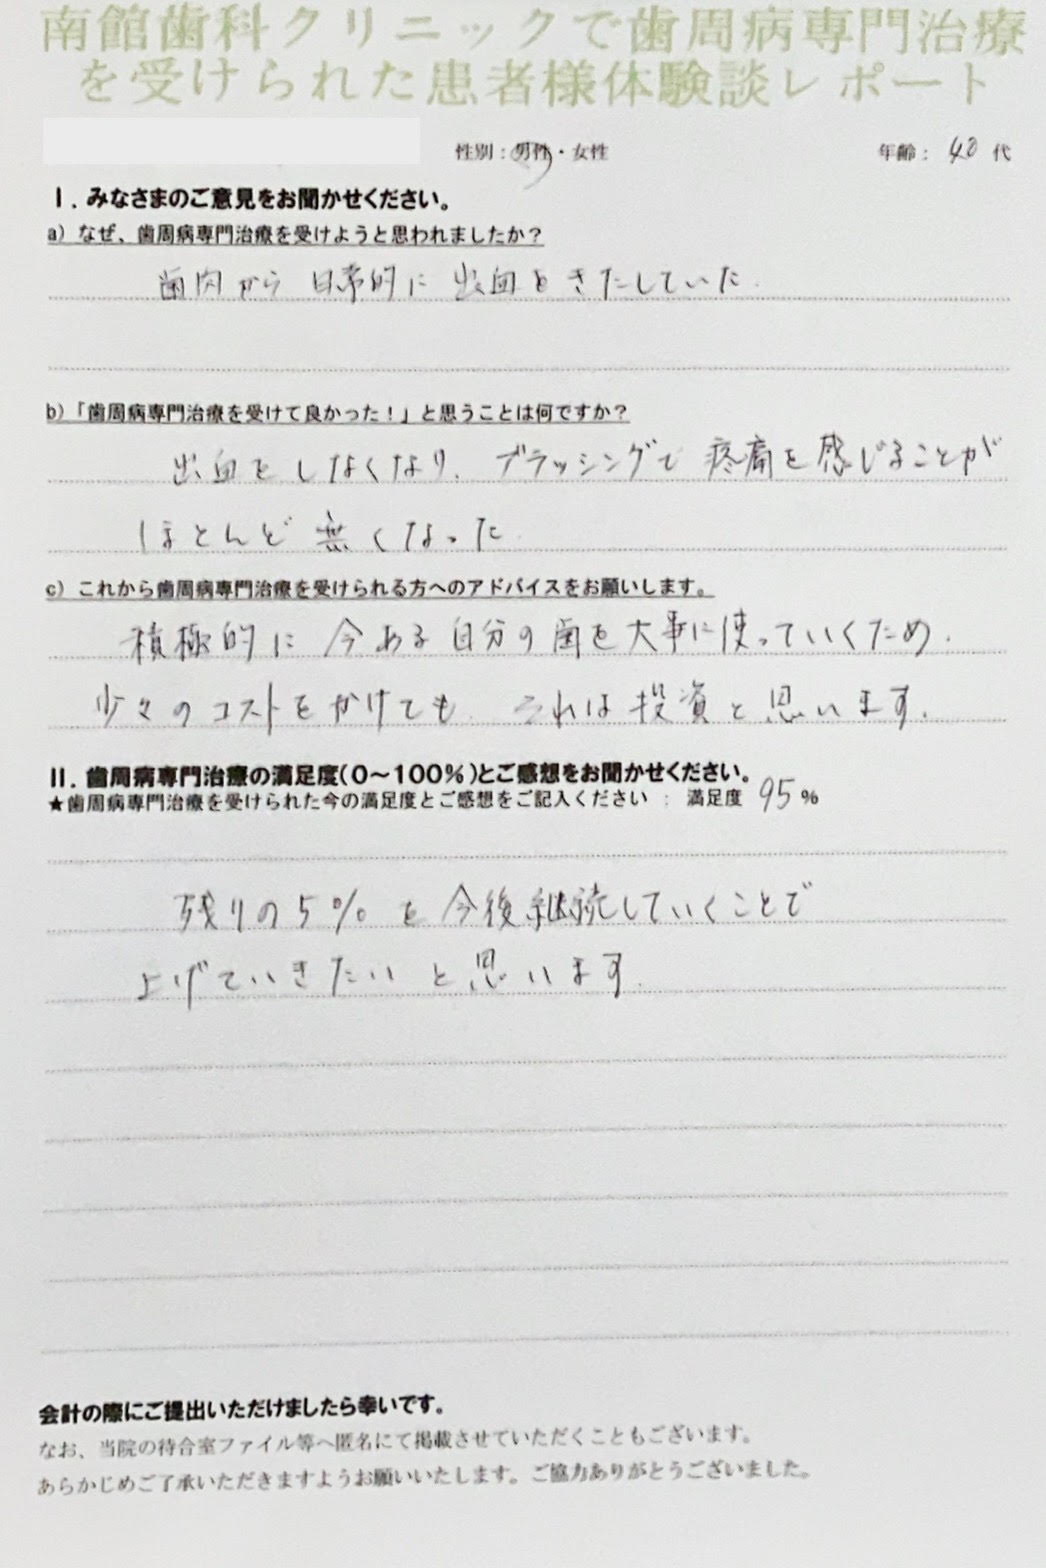 南館歯科クリニックで歯周病専門治療
を受けられた患者様体験談レポート
性別：男性・女性 年齢：40代
Ⅰ．みなさまのご意見をお聞かせください。
a）なぜ、歯周病専門治療を受けようと思われましたか？
歯肉から日常的に出血をきたしていた.
b）「歯周病専門治療を受けて良かった！」と思うことは何ですか？
出血をしなくなり、ブラッシングで疼痛を感じることが
ほとんど無くなった.
c）これから歯周病専門治療を受けられる方へのアドバイスをお願いします。
積極的に今ある自分の歯を大事に使っていくため、
少々のコストをかけても、それは投資と思います.
Ⅱ．歯周病専門治療の満足度（0～100％）とご感想をお聞かせください。
★歯周病専門治療を受けられた今の満足度とご感想をご記入ください ： 満足度 95％
残りの5％を今後継続していくことで
上げていきたいと思います.
会計の際にご提出いただけましたら幸いです。
なお、当院の待合室ファイル等へ匿名にて掲載させていただくこともございます。
あらかじめご了承いただきますようお願いいたします。ご協力ありがとうございました。